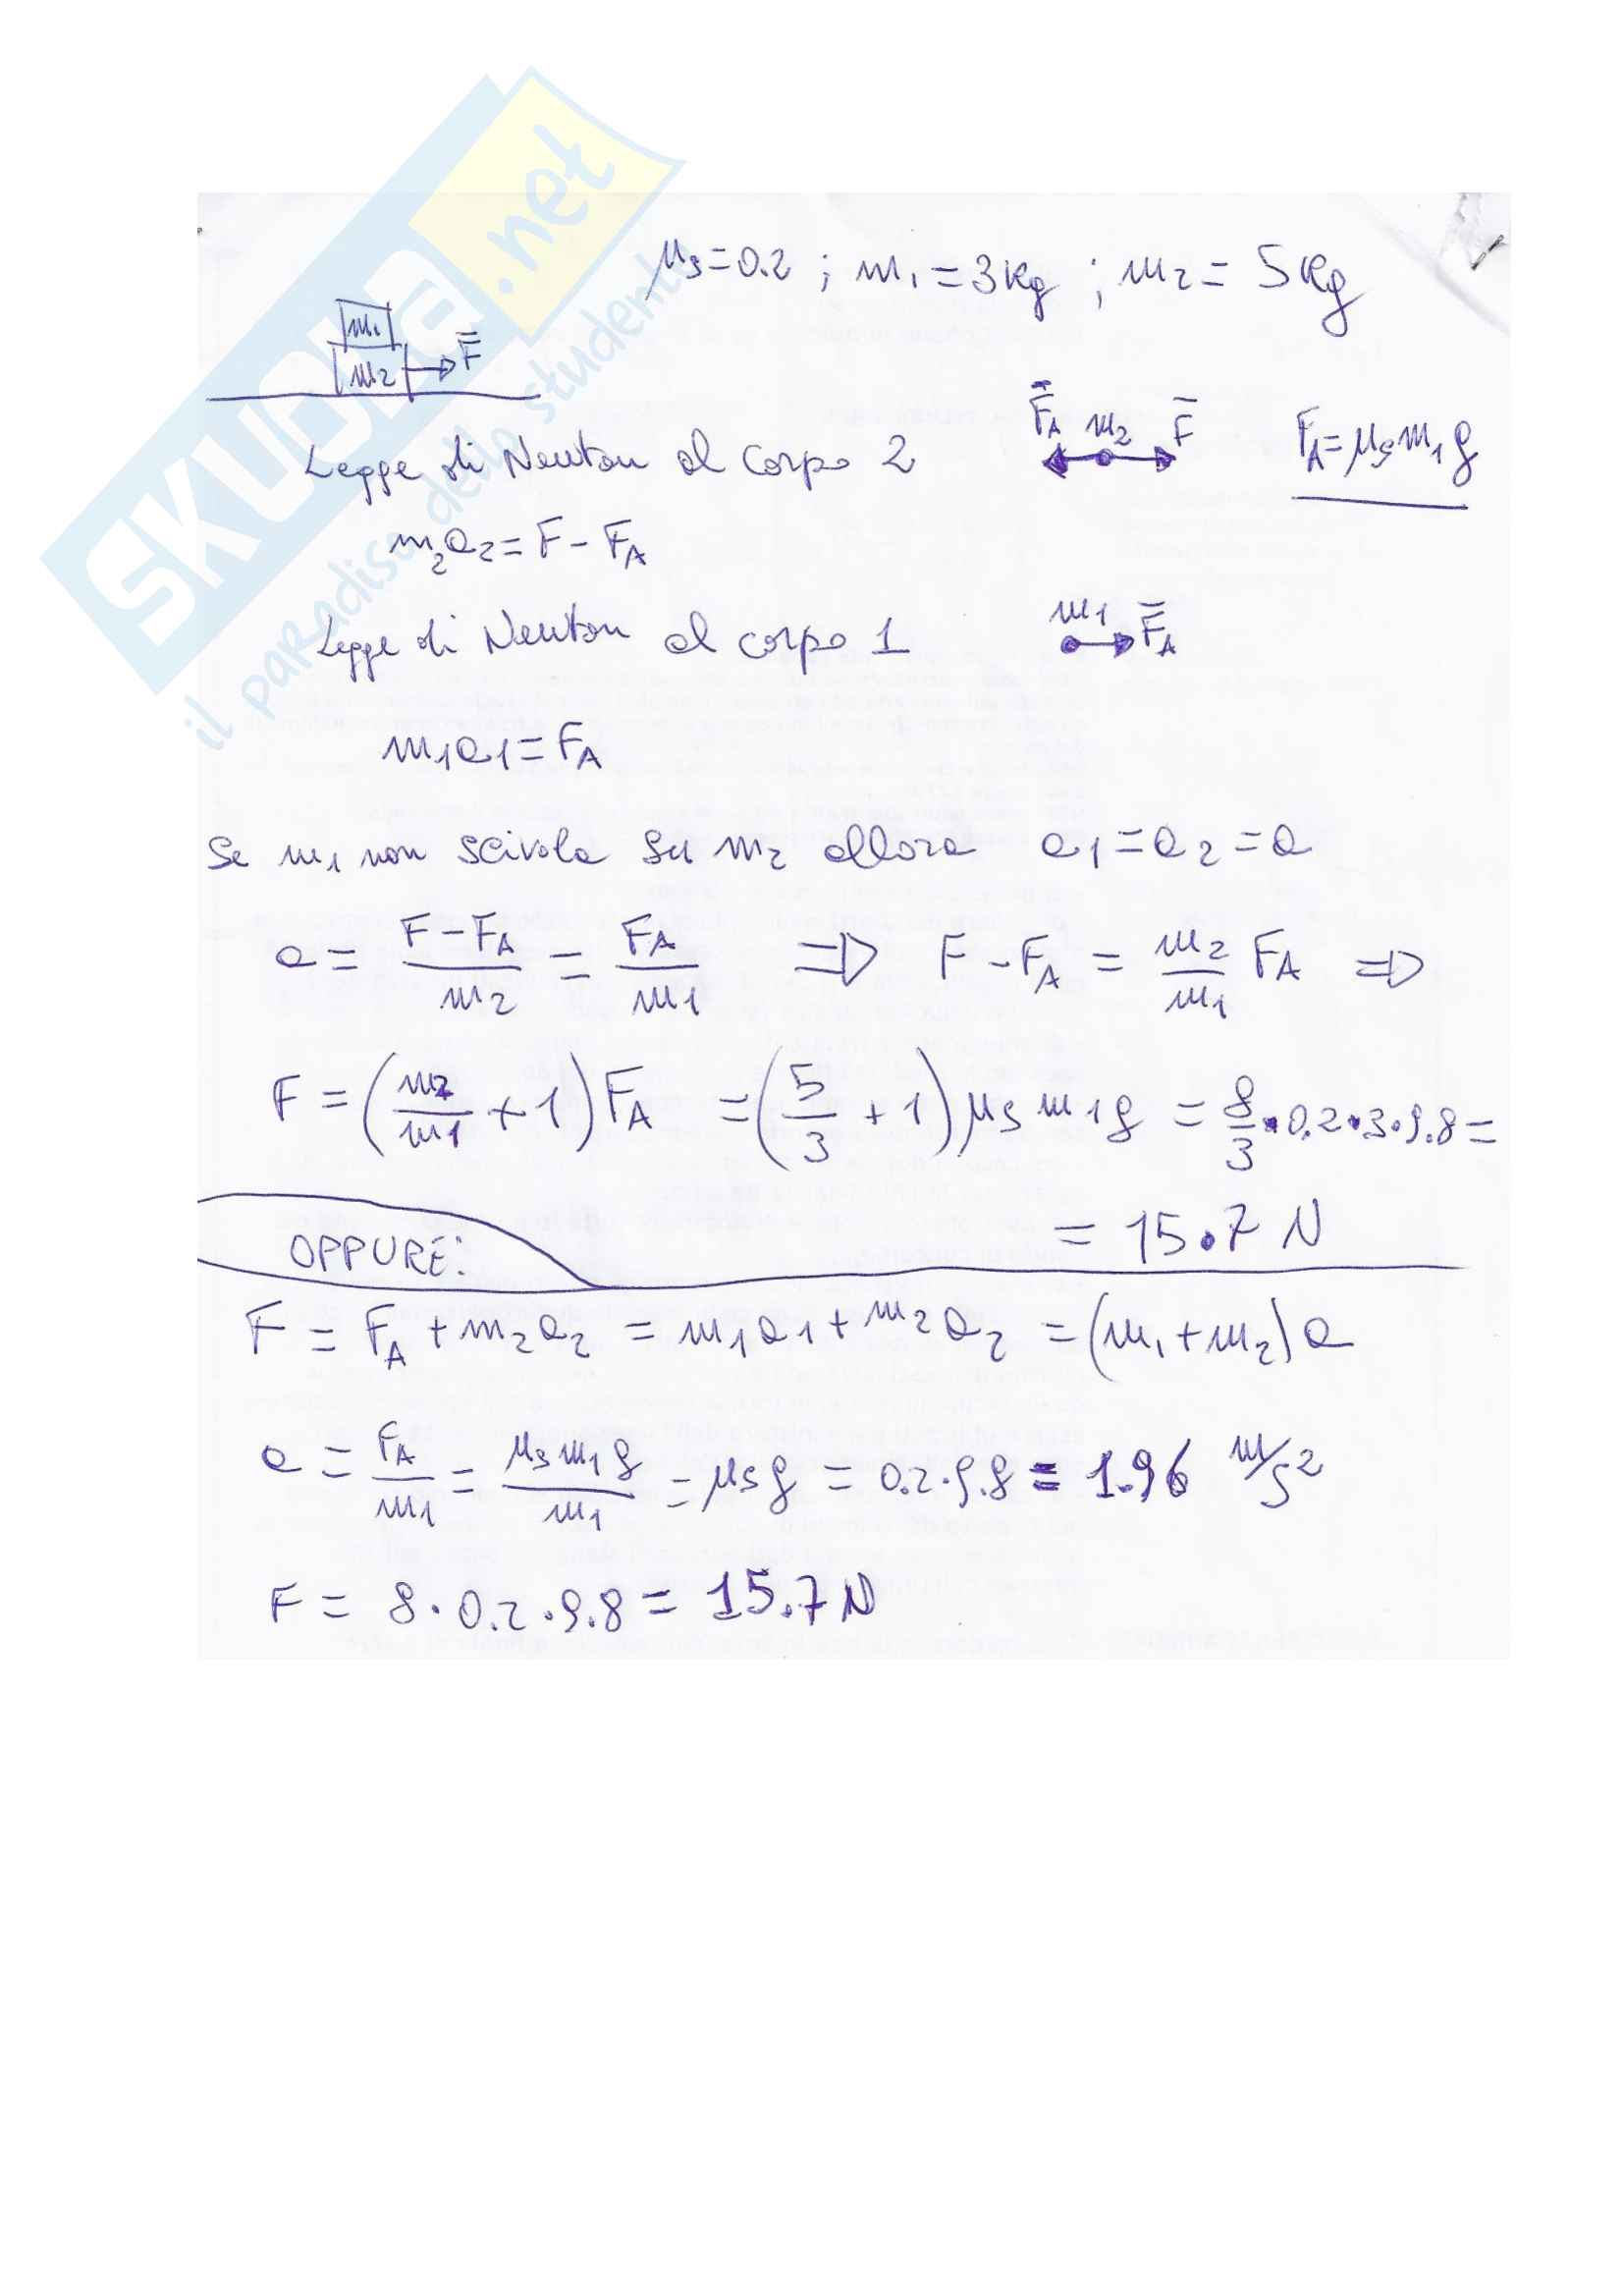 SKUOLA.net
il paradiso dello studente
μs=0.2 ; m1=3kg ; m2= 5kg
m1
m2 F̄
Legge di Newton al corpo 2 F̄A m2 F̄ FA=μs m1 g
m2a2=F-FA
Legge di Newton al corpo 1 m1 F̄A
m1a1=FA
Se m1 non scivola su m2 allora a1=a2=a
a = (F-FA)/m2 = FA/m1 ⇒ F-FA = m2/m1 FA ⇒
F = (m2/m1 + 1) FA = (5/3 + 1) μs m1 g = 8/3 · 0.2 · 3 · 9.8 =
= 15.7 N
OPPURE:
F = FA + m2a2 = m1a1 + m2a2 = (m1+m2) a
a = FA/m1 = μs m1 g/m1 = μs g = 0.2 · 9.8 = 1.96 m/s²
F = 8 · 0.2 · 9.8 = 15.7 N